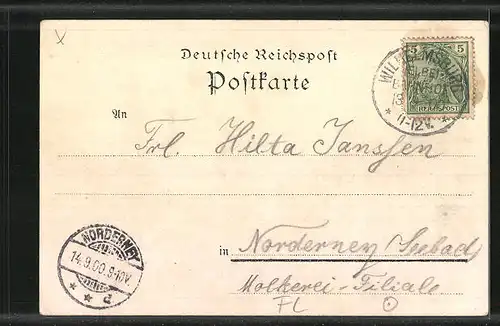 Deutsche Reichspost
Postkarte
5 5
REICHSPOST
11-12V.
An
Frl. Hilta Janssen
NORDERNEY
14.9.00.9-10V.
d
in Norderney (Seebad)
Molkerei-Filiale
FL